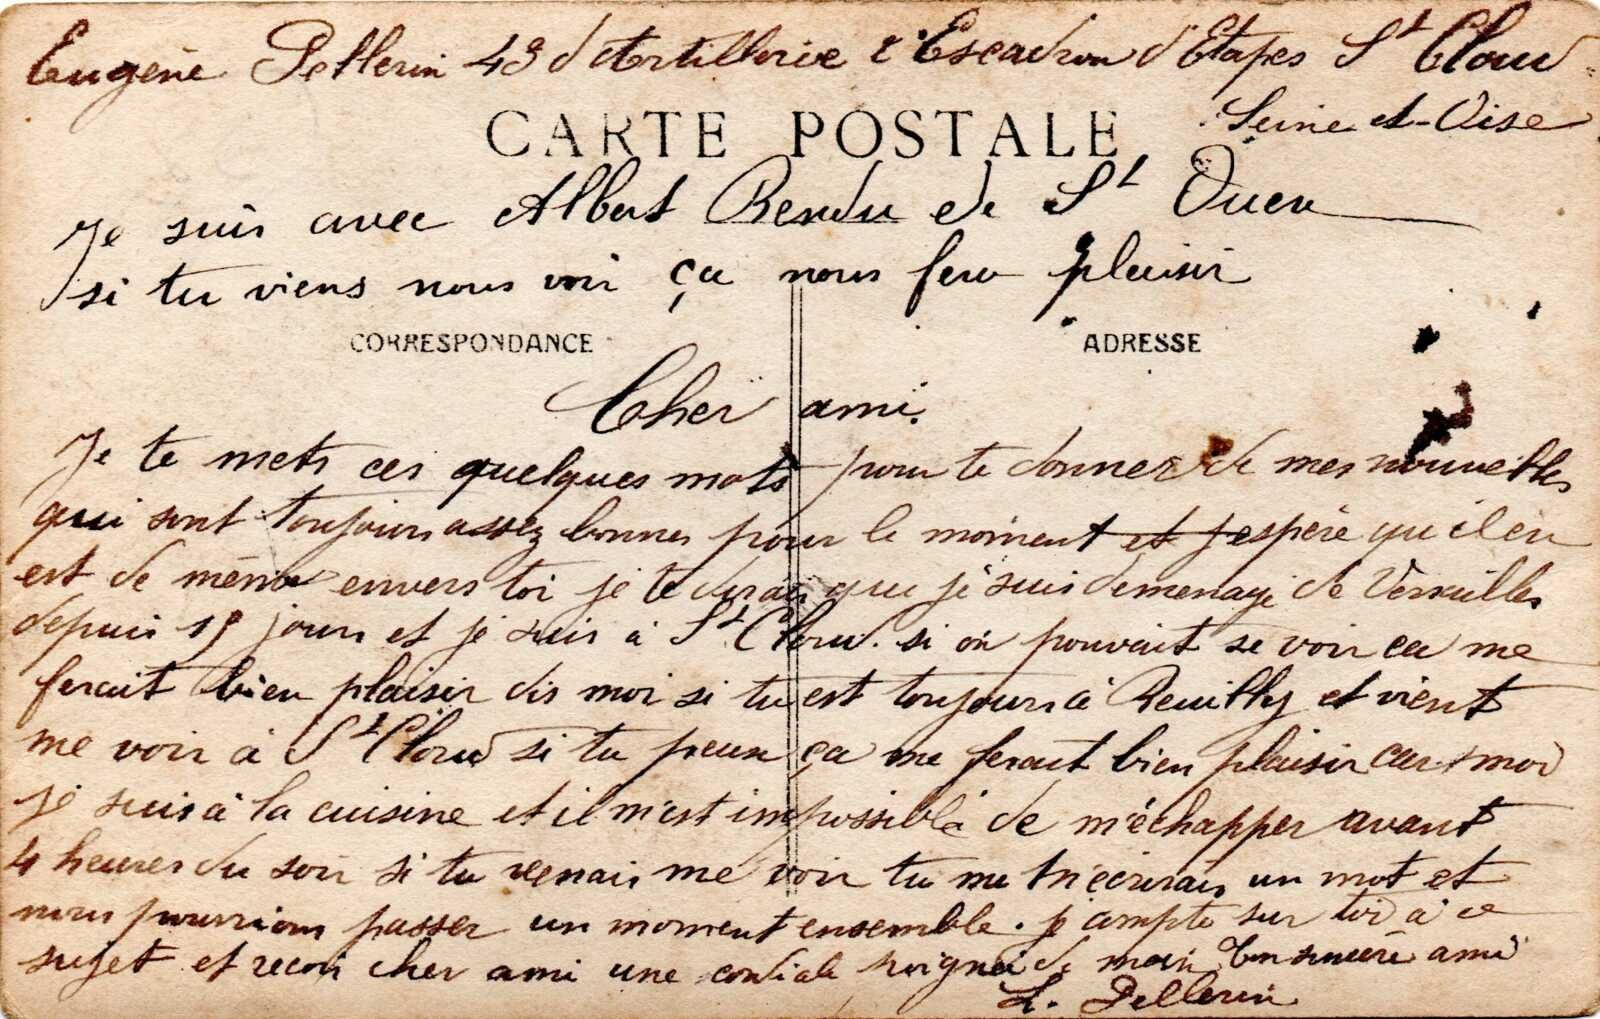 Eugène Pellerin 43 d'Artillerie 2e Escadron d'Etapes St Cloud
Seine et-Oise
CARTE POSTALE
Je suis avec Albert Rendu de St Ouen
si tu viens nous voir ça nous fera plaisir
CORRESPONDANCE
ADRESSE
Cher ami.
Je te mets ces quelques mots pour te donner de mes nouvelles
qui sont toujours assez bonnes pour le moment et j'espère qu'il en
est de même envers toi je te dirai que je suis demenagé de Versailles
depuis 15 jours et je suis à St Cloud. si on pouvait se voir ca me
ferait bien plaisir dis moi si tu est toujours à Reuilly et vient
me voir à St Cloud si tu peux ça me ferait bien plaisir car moi
je suis à la cuisine et il m'est impossible de m'échapper avant
4 heures du soir si tu venais me voir tu me m'écrirais un mot et
nous pourrions passer un moment ensemble. je compte sur toi à ce
sujet et recoi cher ami une cordiale poignée de main Ton sincère ami
Pellerin